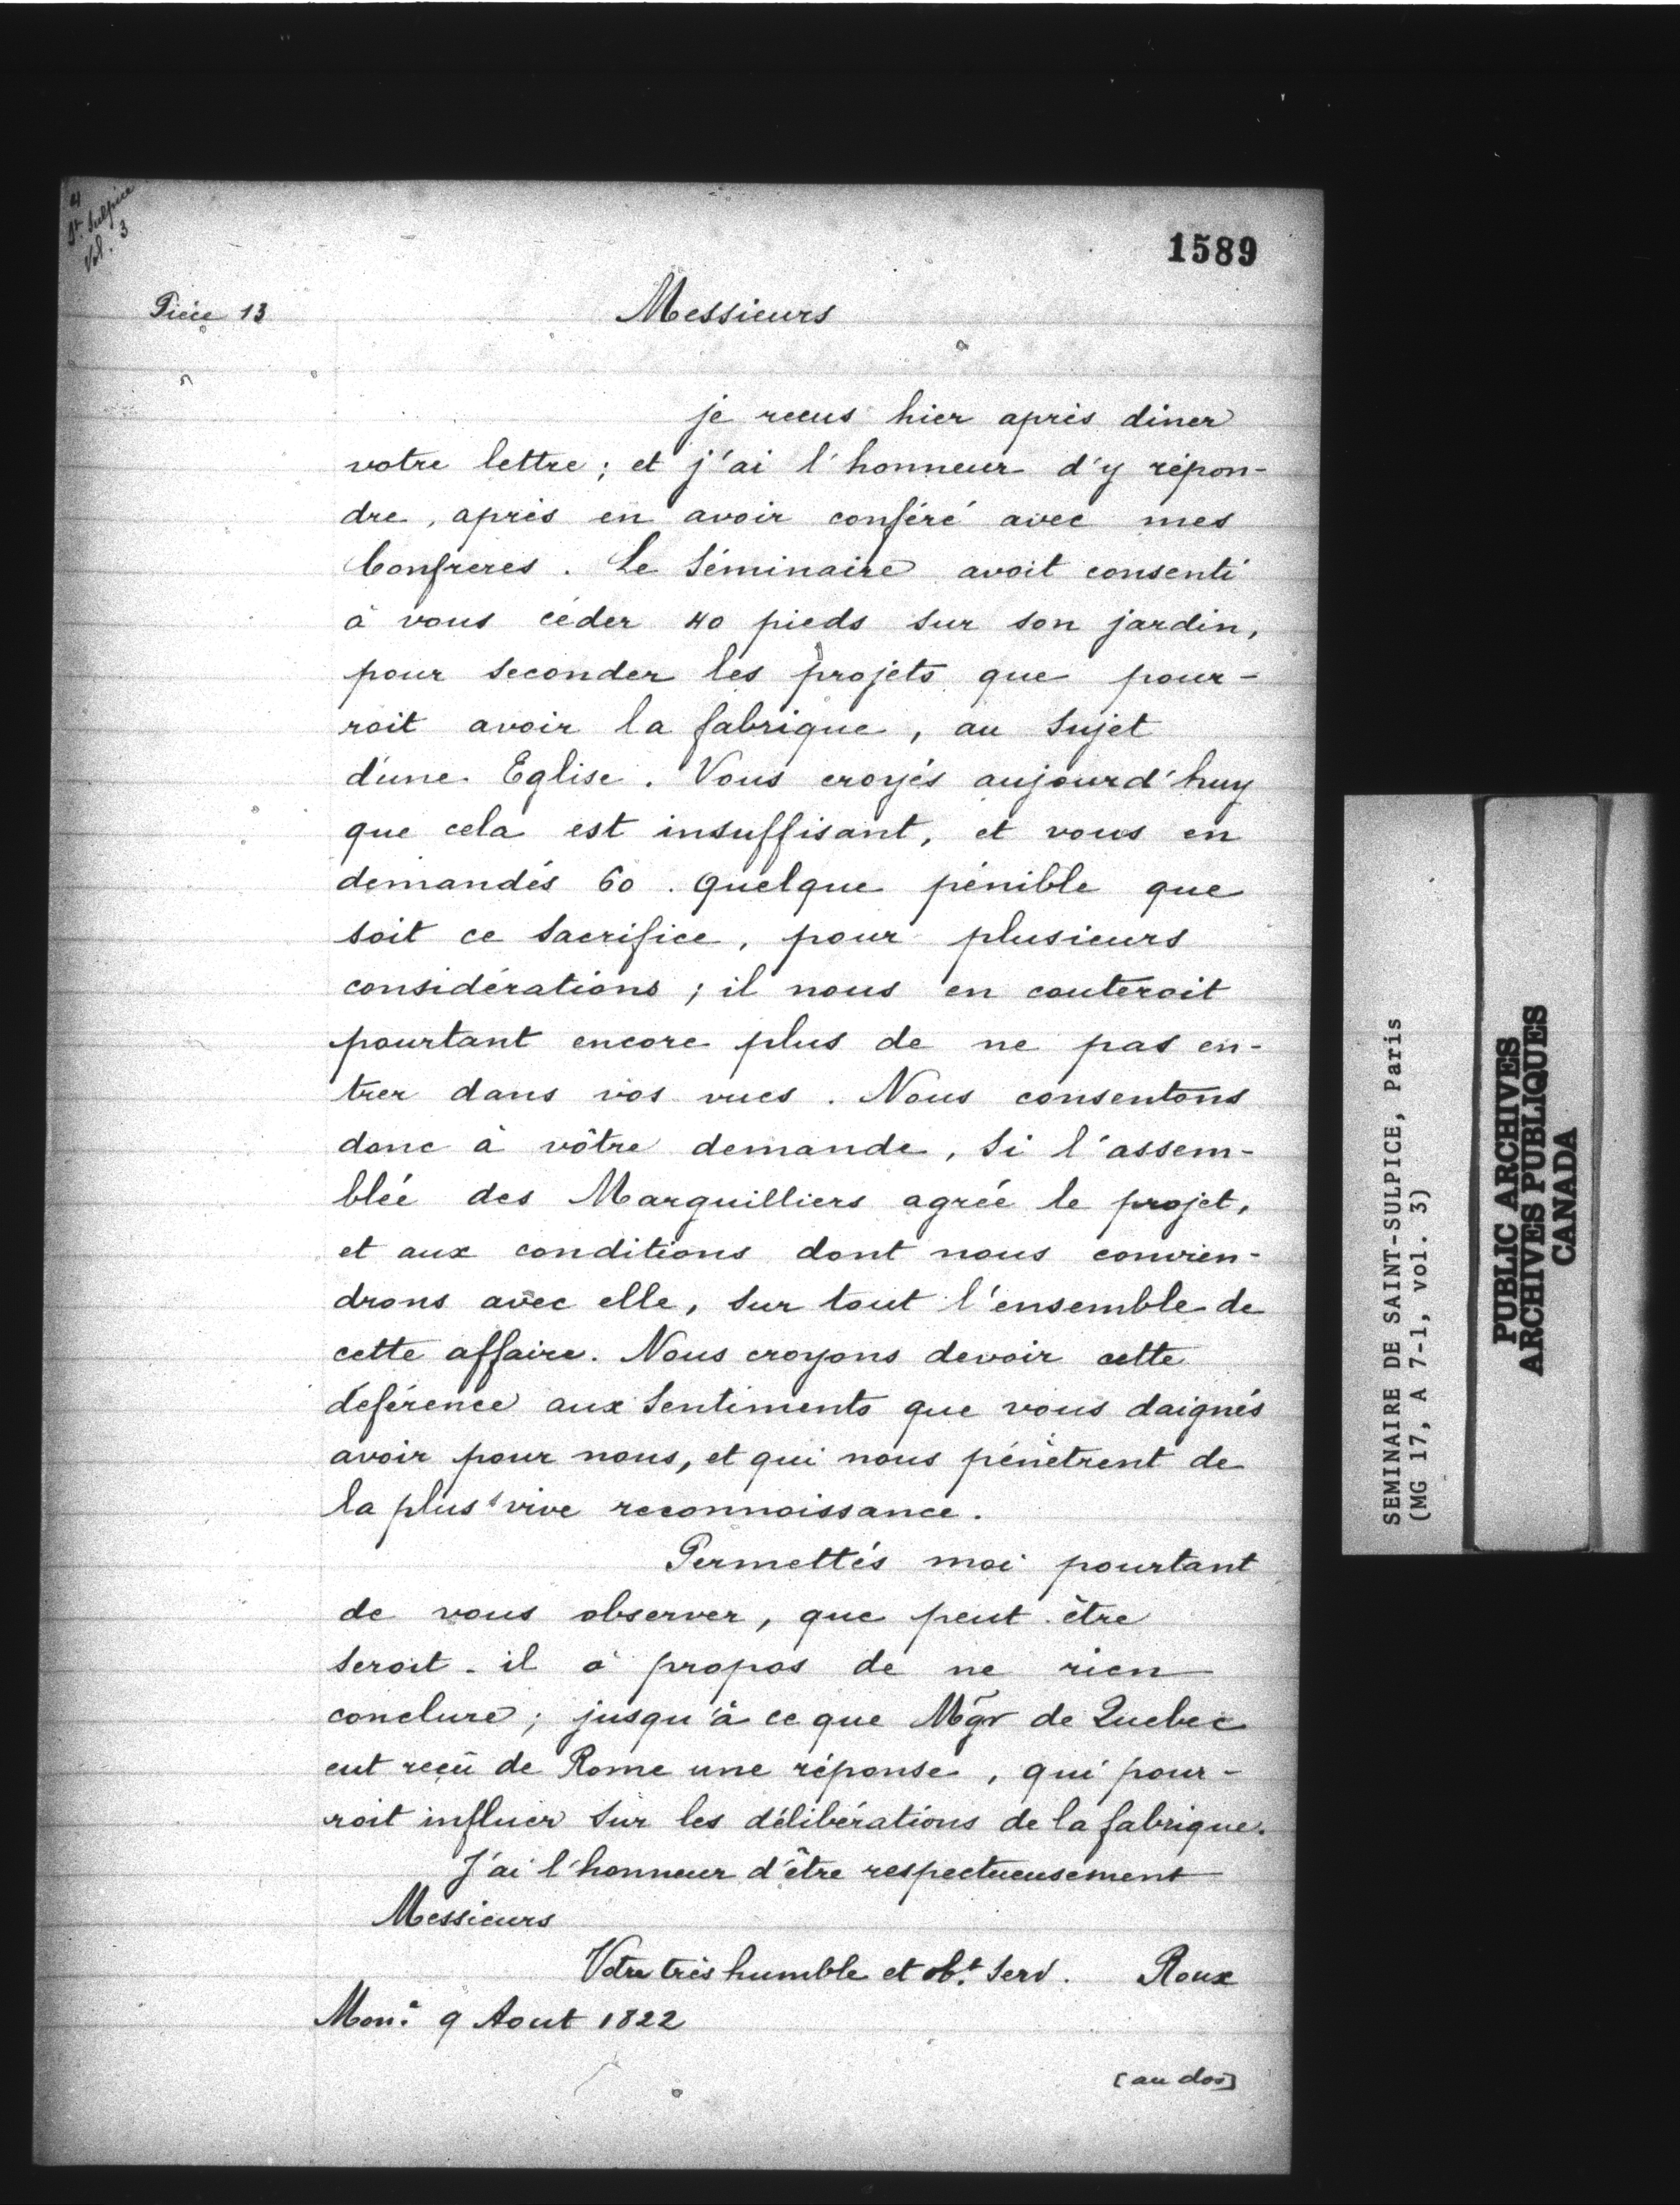 St. Sulpice
Vol. 3
1589
Pièce 13
Messieurs
je recus hier après diner
votre lettre; et j'ai l'honneur d'y répon-
dre, après en avoir conféré avec mes
Confreres. Le Séminaire avoit consenti
à vous céder 40 pieds sur son jardin,
pour seconder les projets que pour-
roit avoir la fabrique, au sujet
d'une Eglise. Vous croyés aujourd'huy
que cela est insuffisant, et vous en
demandés 60. Quelque pénible que
soit ce sacrifice, pour plusieurs
considérations; il nous en couteroit
pourtant encore plus de ne pas en-
trer dans vos vues. Nous consentons
donc à vôtre demande, si l'assem-
blée des Marguilliers agrée le projet,
et aux conditions dont nous convien-
drons avec elle, sur tout l'ensemble de
cette affaire. Nous croyons devoir cette
déférence aux sentiments que vous daignés
avoir pour nous, et qui nous pénètrent de
la plus vive reconnoissance.
Permettés moi pourtant
de vous observer, que peut être
seroit-il à propos de ne rien
conclure; jusqu'à ce que Mgr de Quebec
eut reçû de Rome une réponse, qui pour-
roit influer sur les délibérations de la fabrique.
J'ai l'honneur d'être respectueusement
Messieurs
Votre très humble et obt. serv. Roux
Mon. 9 Aout 1822
[au dos]
SEMINAIRE DE SAINT-SULPICE, Paris
(MG 17, A 7-1, vol. 3)
PUBLIC ARCHIVES
ARCHIVES PUBLIQUES
CANADA